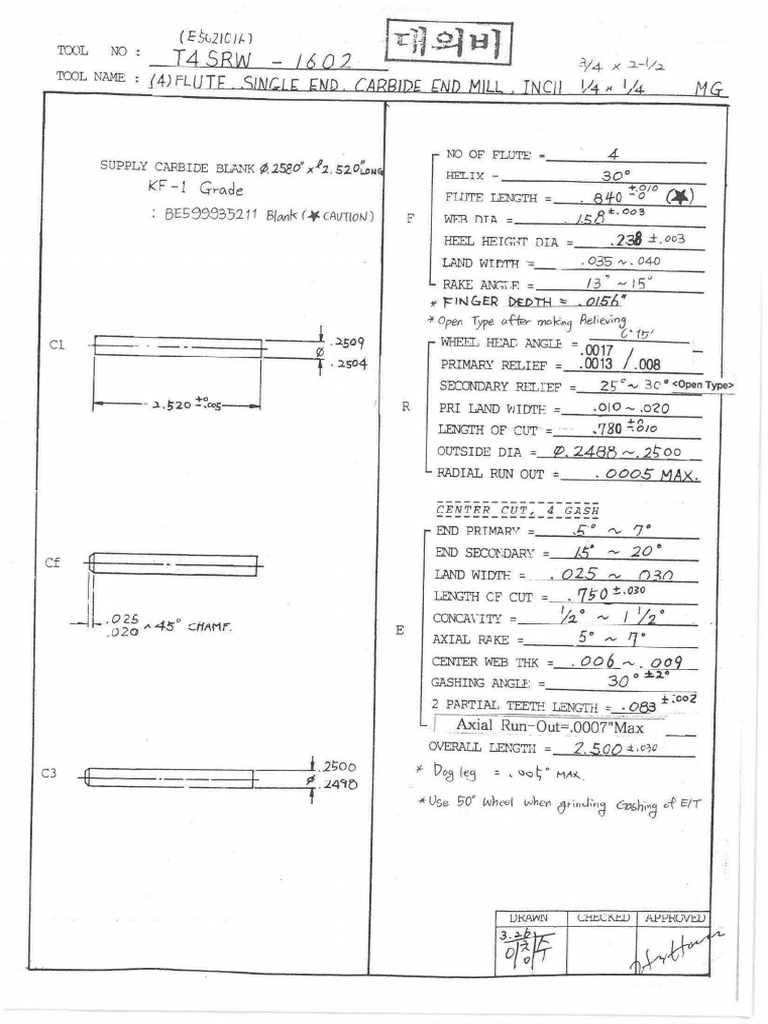 (E5021016)
대외비
TOOL NO : T4SRW - 1602
3/4 x 2-1/2
TOOL NAME : (4) FLUTE, SINGLE END, CARBIDE END MILL, INCH 1/4 x 1/4 MG
SUPPLY CARBIDE BLANK Ø.2580" x ℓ2.520" LONG
KF-1 Grade
: BE599935211 Blank (★CAUTION)
C1
.2509
Ø
.2504
2.520 +0 -.005
Cf
.025
.020 × 45° CHAMF.
C3
.2500
Ø
.2498
F
NO OF FLUTE = 4
HELIX - 30°
FLUTE LENGTH = .840 +.010 -0 (★)
WEB DIA = .158 ±.003
HEEL HEIGHT DIA = .238 ±.003
LAND WIDTH = .035 ~ .040
RAKE ANGLE = 13° ~ 15°
* FINGER DEDTH = .0156"
* Open Type after making Relieving
R
WHEEL HEAD ANGLE = 6°15'
PRIMARY RELIEF = .0017 .0013 / .008
SECONDARY RELIEF = 25° ~ 30° <Open Type>
PRI LAND WIDTH = .010 ~ .020
LENGTH OF CUT = .780 +0 -.010
OUTSIDE DIA = Ø.2488 ~ .2500
RADIAL RUN OUT = .0005 MAX.
E
CENTER CUT, 4 GASH
END PRIMARY = 5° ~ 7°
END SECONDARY = 15° ~ 20°
LAND WIDTH = .025 ~ .030
LENGTH OF CUT = .750 ±.030
CONCAVITY = 1/2° ~ 1 1/2°
AXIAL RAKE = 5° ~ 7°
CENTER WEB THK = .006 ~ .009
GASHING ANGLE = 30° ±2°
2 PARTIAL TEETH LENGTH = .083 ±.002
Axial Run-Out=.0007"Max
OVERALL LENGTH = 2.500 ±.030
* Dog leg = .005" MAX.
* Use 50° wheel when grinding Gashing of E/T
DRAWN CHECKED APPROVED
3.26